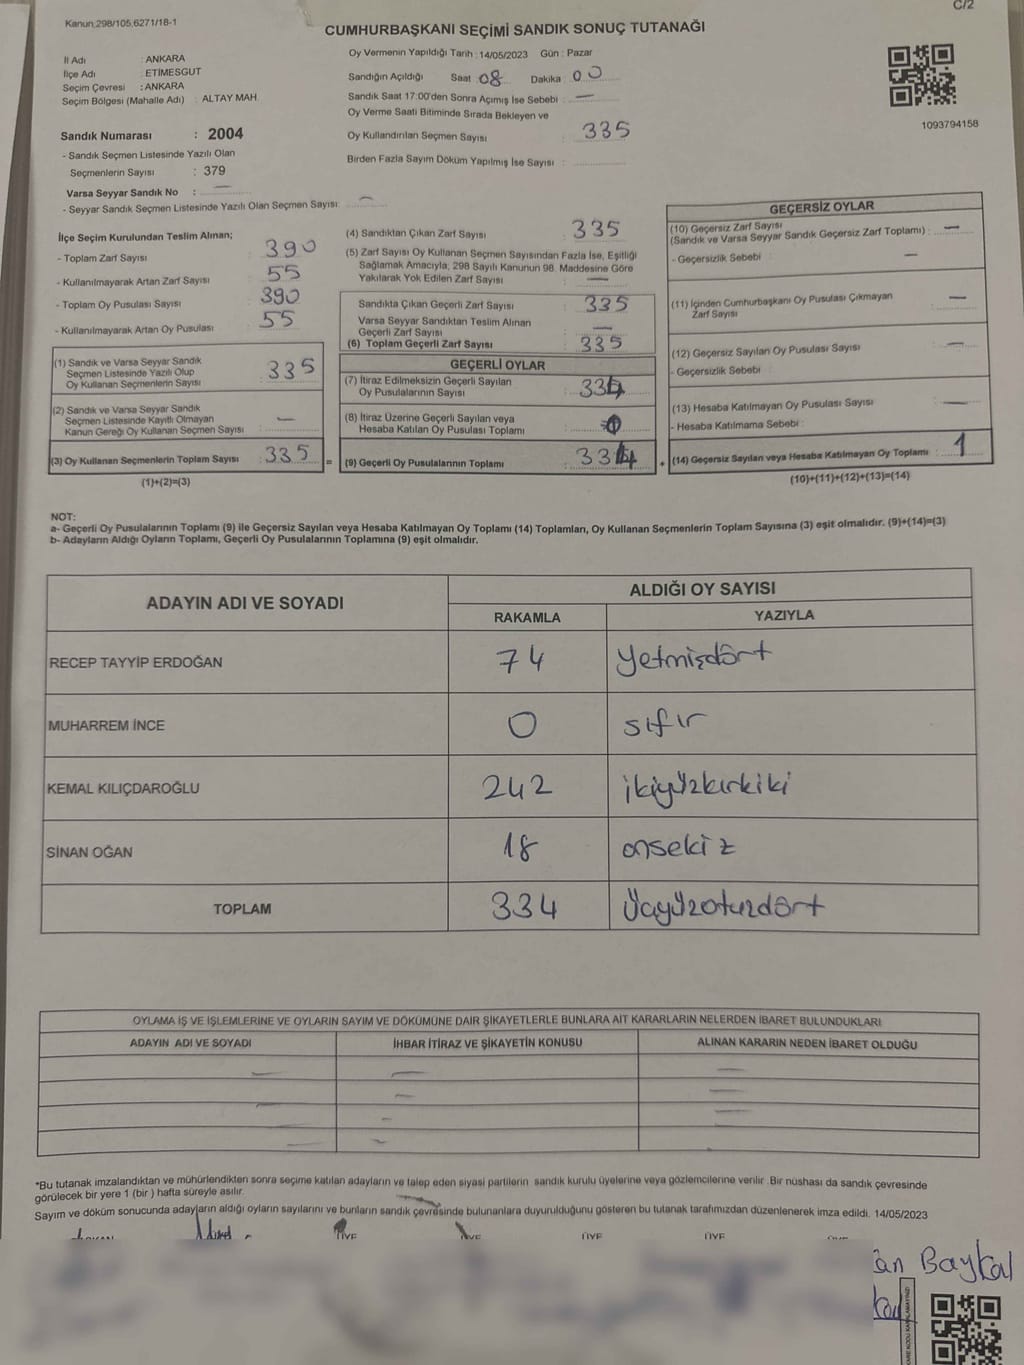 C/2
Kanun,298/105,6271/18-1
CUMHURBAŞKANI SEÇİMİ SANDIK SONUÇ TUTANAĞI
İl Adı : ANKARA
İlçe Adı : ETİMESGUT
Seçim Çevresi : ANKARA
Seçim Bölgesi (Mahalle Adı) : ALTAY MAH.
Oy Vermenin Yapıldığı Tarih :14/05/2023 Gün : Pazar
Sandığın Açıldığı Saat :08 Dakika :00
Sandık Saat 17:00'den Sonra Açımış İse Sebebi : —
Oy Verme Saati Bitiminde Sırada Bekleyen ve
Oy Kullandırılan Seçmen Sayısı : 335
Birden Fazla Sayım Döküm Yapılmış İse Sayısı :
1093794158
Sandık Numarası : 2004
- Sandık Seçmen Listesinde Yazılı Olan
Seçmenlerin Sayısı : 379
Varsa Seyyar Sandık No : —
- Seyyar Sandık Seçmen Listesinde Yazılı Olan Seçmen Sayısı: —
İlçe Seçim Kurulundan Teslim Alınan;
- Toplam Zarf Sayısı 390
- Kullanılmayarak Artan Zarf Sayısı 55
- Toplam Oy Pusulası Sayısı 390
- Kullanılmayarak Artan Oy Pusulası 55
(1) Sandık ve Varsa Seyyar Sandık
Seçmen Listesinde Yazılı Olup
Oy Kullanan Seçmenlerin Sayısı : 335
(2) Sandık ve Varsa Seyyar Sandık
Seçmen Listesinde Kayıtlı Olmayan
Kanun Gereği Oy Kullanan Seçmen Sayısı : —
(3) Oy Kullanan Seçmenlerin Toplam Sayısı : 335 =
(1)+(2)=(3)
(4) Sandıktan Çıkan Zarf Sayısı : 335
(5) Zarf Sayısı Oy Kullanan Seçmen Sayısından Fazla İse, Eşitliği
Sağlamak Amacıyla, 298 Sayılı Kanunun 98. Maddesine Göre
Yakılarak Yok Edilen Zarf Sayısı : —
Sandıkta Çıkan Geçerli Zarf Sayısı : 335
Varsa Seyyar Sandıktan Teslim Alınan
Geçerli Zarf Sayısı : —
(6) Toplam Geçerli Zarf Sayısı : 335
GEÇERLİ OYLAR
(7) İtiraz Edilmeksizin Geçerli Sayılan
Oy Pusulalarının Sayısı : 334
(8) İtiraz Üzerine Geçerli Sayılan veya
Hesaba Katılan Oy Pusulası Toplamı :
(9) Geçerli Oy Pusulalarının Toplamı : 334 +
GEÇERSİZ OYLAR
(10) Geçersiz Zarf Sayısı
(Sandık ve Varsa Seyyar Sandık Geçersiz Zarf Toplamı) : —
- Geçersizlik Sebebi : —
(11) İçinden Cumhurbaşkanı Oy Pusulası Çıkmayan
Zarf Sayısı : —
(12) Geçersiz Sayılan Oy Pusulası Sayısı : —
- Geçersizlik Sebebi :
(13) Hesaba Katılmayan Oy Pusulası Sayısı : —
- Hesaba Katılmama Sebebi :
(14) Geçersiz Sayılan veya Hesaba Katılmayan Oy Toplamı : 1
(10)+(11)+(12)+(13)=(14)
NOT:
a- Geçerli Oy Pusulalarının Toplamı (9) ile Geçersiz Sayılan veya Hesaba Katılmayan Oy Toplamı (14) Toplamları, Oy Kullanan Seçmenlerin Toplam Sayısına (3) eşit olmalıdır. (9)+(14)=(3)
b- Adayların Aldığı Oyların Toplamı, Geçerli Oy Pusulalarının Toplamına (9) eşit olmalıdır.
ADAYIN ADI VE SOYADI
ALDIĞI OY SAYISI
RAKAMLA YAZIYLA
RECEP TAYYİP ERDOĞAN 74 yetmişdört
MUHARREM İNCE 0 sıfır
KEMAL KILIÇDAROĞLU 242 ikiyüzkırkiki
SİNAN OĞAN 18 onsekiz
TOPLAM 334 Üçyüzotuzdört
OYLAMA İŞ VE İŞLEMLERİNE VE OYLARIN SAYIM VE DÖKÜMÜNE DAİR ŞİKAYETLERLE BUNLARA AİT KARARLARIN NELERDEN İBARET BULUNDUKLARI
ADAYIN ADI VE SOYADI İHBAR İTİRAZ VE ŞİKAYETİN KONUSU ALINAN KARARIN NEDEN İBARET OLDUĞU
*Bu tutanak imzalandıktan ve mühürlendikten sonra seçime katılan adayların ve talep eden siyasi partilerin sandık kurulu üyelerine veya gözlemcilerine verilir .Bir nüshası da sandık çevresinde
görülecek bir yere 1 (bir ) hafta süreyle asılır.
Sayım ve döküm sonucunda adayların aldığı oyların sayılarını ve bunların sandık çevresinde bulunanlara duyurulduğunu gösteren bu tutanak tarafımızdan düzenlenerek imza edildi. 14/05/2023
ÜYE ÜYE ÜYE ÜYE
Baykal